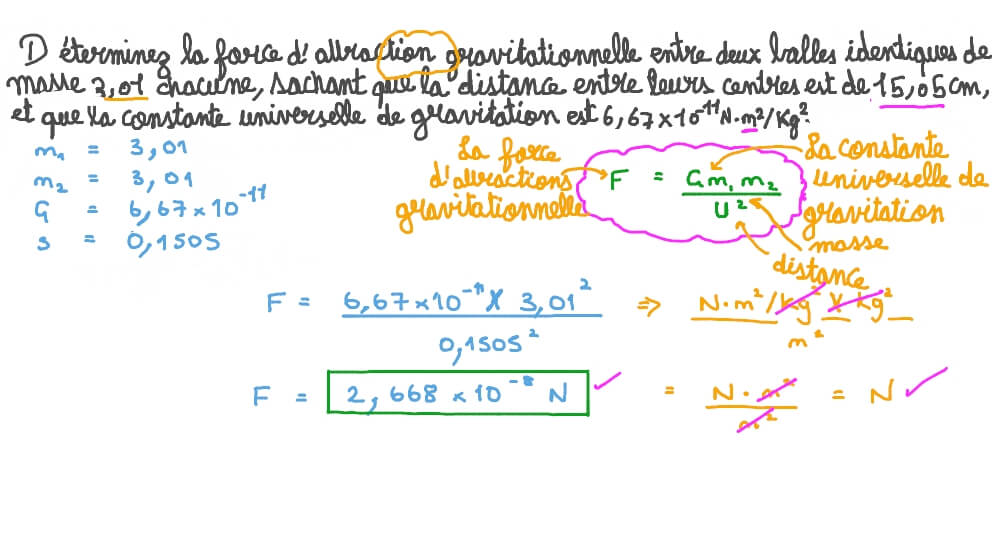 Déterminez la force d'attraction gravitationnelle entre deux balles identiques de
masse 3,01 chacune, sachant que la distance entre leurs centres est de 15,05cm,
et que la constante universelle de gravitation est 6,67×10⁻¹¹N·m²/Kg².
m₁ = 3,01
m₂ = 3,01
G = 6,67×10⁻¹¹
s = 0,1505
La force
d'attractions
gravitationnelle
F = Gm₁m₂ / U²
La constante
universelle de
gravitation
masse
distance
F = 6,67×10⁻¹¹ × 3,01² / 0,1505² ⇒ N·m²/kg² × kg² / m²
F = 2,668 × 10⁻⁸ N ✓ = N·m² / m² = N ✓